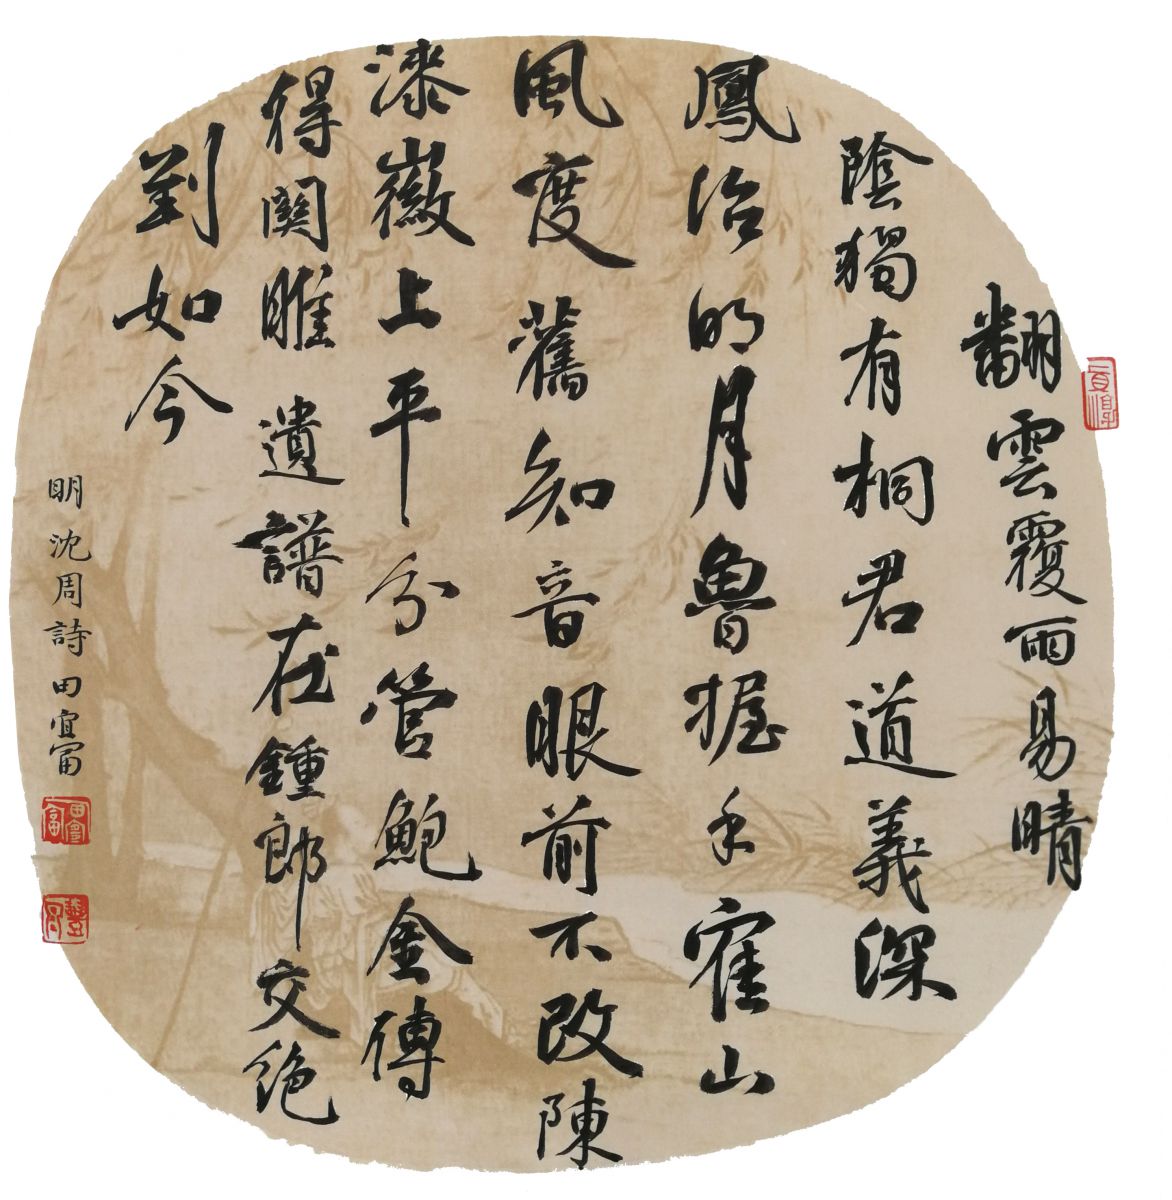 翻雲覆雨易晴
陰獨有桐君道義深
鳳沼明月曾握手霍山
風度舊知音眼前不改陳
漆徽上平分管鮑金傳
得關雎遺譜在鍾郎交絕
到如今
明沈周詩田宜富